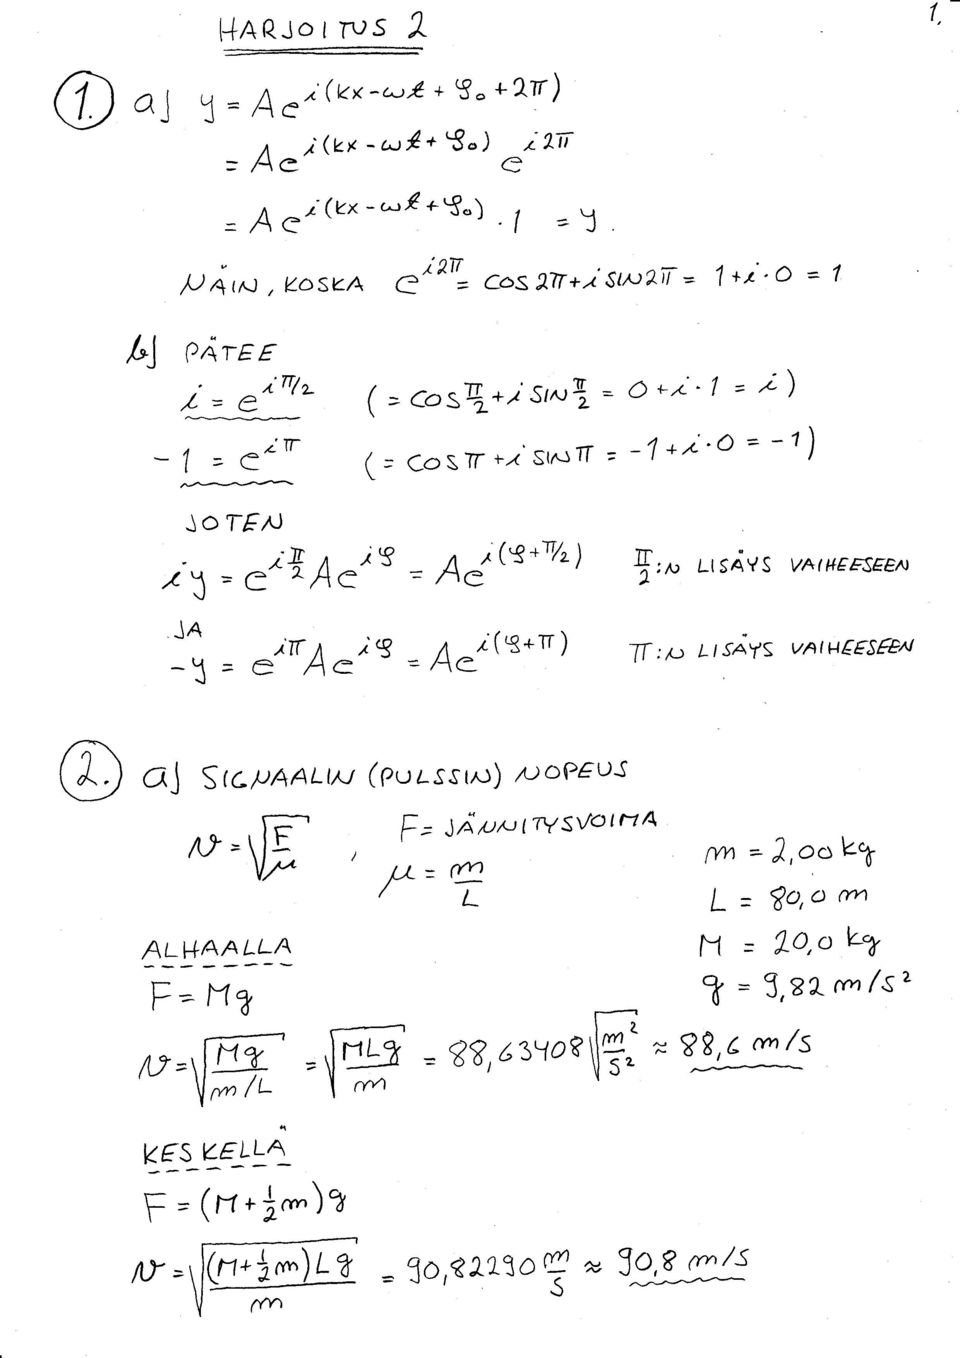 1.
HARJOITUS 2
1. a) y = Ae^{i(kx-ωt+φ₀+2π)}
= Ae^{i(kx-ωt+φ₀)} e^{i2π}
= Ae^{i(kx-ωt+φ₀)} · 1 = y.
NÄIN, KOSKA e^{i2π} = COS 2π + i SIN 2π = 1 + i·0 = 1
b) PÄTEE
i = e^{iπ/2} (= COS π/2 + i SIN π/2 = 0 + i·1 = i)
-1 = e^{iπ} (= COS π + i SIN π = -1 + i·0 = -1)
JOTEN
iy = e^{iπ/2} Ae^{iφ} = Ae^{i(φ+π/2)} π/2:N LISÄYS VAIHEESEEN
JA
-y = e^{iπ} Ae^{iφ} = Ae^{i(φ+π)} π:N LISÄYS VAIHEESEEN
2. a) SIGNAALIN (PULSSIN) NOPEUS
v = √(F/μ) , F = JÄNNITYSVOIMA
μ = m/L
m = 2,00 kg
L = 80,0 m
M = 20,0 kg
g = 9,82 m/s²
ALHAALLA
F = Mg
v = √(Mg/(m/L)) = √(MLg/m) = 88,63408 √(m²/s²) ≈ 88,6 m/s
KESKELLÄ
F = (M + ½m)g
v = √((M + ½m)Lg/m) = 90,82290 m/s ≈ 90,8 m/s